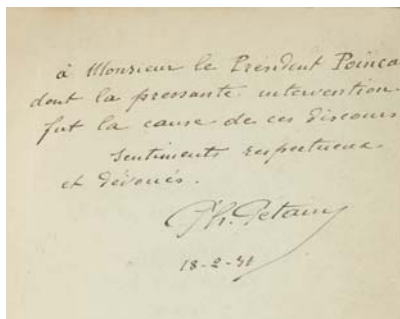 à Monsieur le Président Poinca
dont la pressante intervention
fut la cause de ces discours
sentiments respectueux
et dévoués.
Ph. Pétain
18-2-31